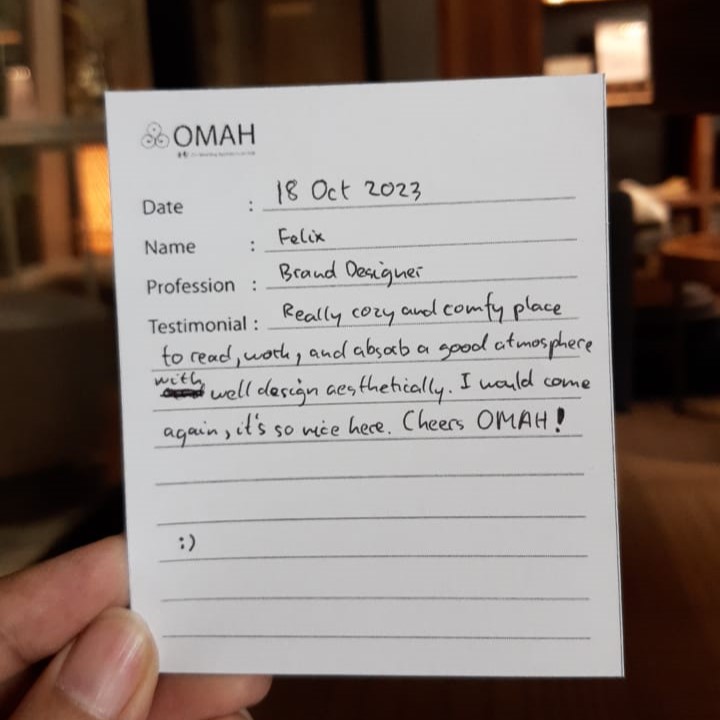 OMAH
Date : 18 Oct 2023
Name : Felix
Profession : Brand Designer
Testimonial : Really cozy and comfy place
to read, work, and absorb a good atmosphere
with well design aesthetically. I would come
again, it's so nice here. Cheers OMAH!
:)